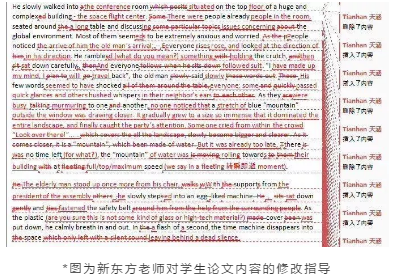 He slowly walked into the conference room which situated on the top floor of a huge and
complexed building - the space flight center. Some There were people already people in the room,
seated around the a long table and discussing some particular topics issues concerning about the
global environment. Most of them seemed to be extremely anxious and worried. As the people
noticed the arrival of him the old man's arrival, Everyone rises rose, and looked at the direction of
him in his direction. He rambled (what do you mean? something with holding the crutch, and then
sit sat down carefully, then And everyone follows when he sits down followed suit. "I have made up
my mind, I plan to will go travel back", the old man slowly said slowly these words out. These His
few words seemed to have shocked all of them around the table, everyone; some and quickly passed
quick glances and others hushed whispers in their neighbor's ears to each other. As they were
busy talking murmuring to one and another, no one noticed that a stretch of blue "mountain"
outside the window was drawing closer. It gradually grew to a size so immense that it dominated the
entire landscape, and finally caught the party's attention. Some one cried from within the crowd
"Look over there!" ... which covers the all the landscape, slowly become bigger and clearer. As it
comes closer, it is a "mountain", which been made of water. But it was already too late. There is
was no time left (for what?), the "mountain" of water was is moving rolling towards to them their
building with at fleeting full/top/maximum speed (we say in a fleeting 转瞬即逝 moment).
The elderly man stood up once more from his chair, walks with the supports from the
president of the assembly others, he slowly stepped into an egg-liked machine. He sat down
gently and fastened the safety belt around him from the help from the surrounding people. As
the plastic (are you sure this is not some kind of glass or high-tech material?) made cover been was
put down, he calmly breath in and out. In the a flash of a second, the time machine disappears into
the space which only left with a silent sound leaving behind a dead silence.
Tianhan 天涵
删除了内容
Tianhan 天涵
插入了内容
Tianhan 天涵
删除了内容
Tianhan 天涵
插入了内容
Tianhan 天涵
删除了内容
Tianhan 天涵
插入了内容
Tianhan 天涵
删除了内容
Tianhan 天涵
插入了内容
*图为新东方老师对学生论文内容的修改指导